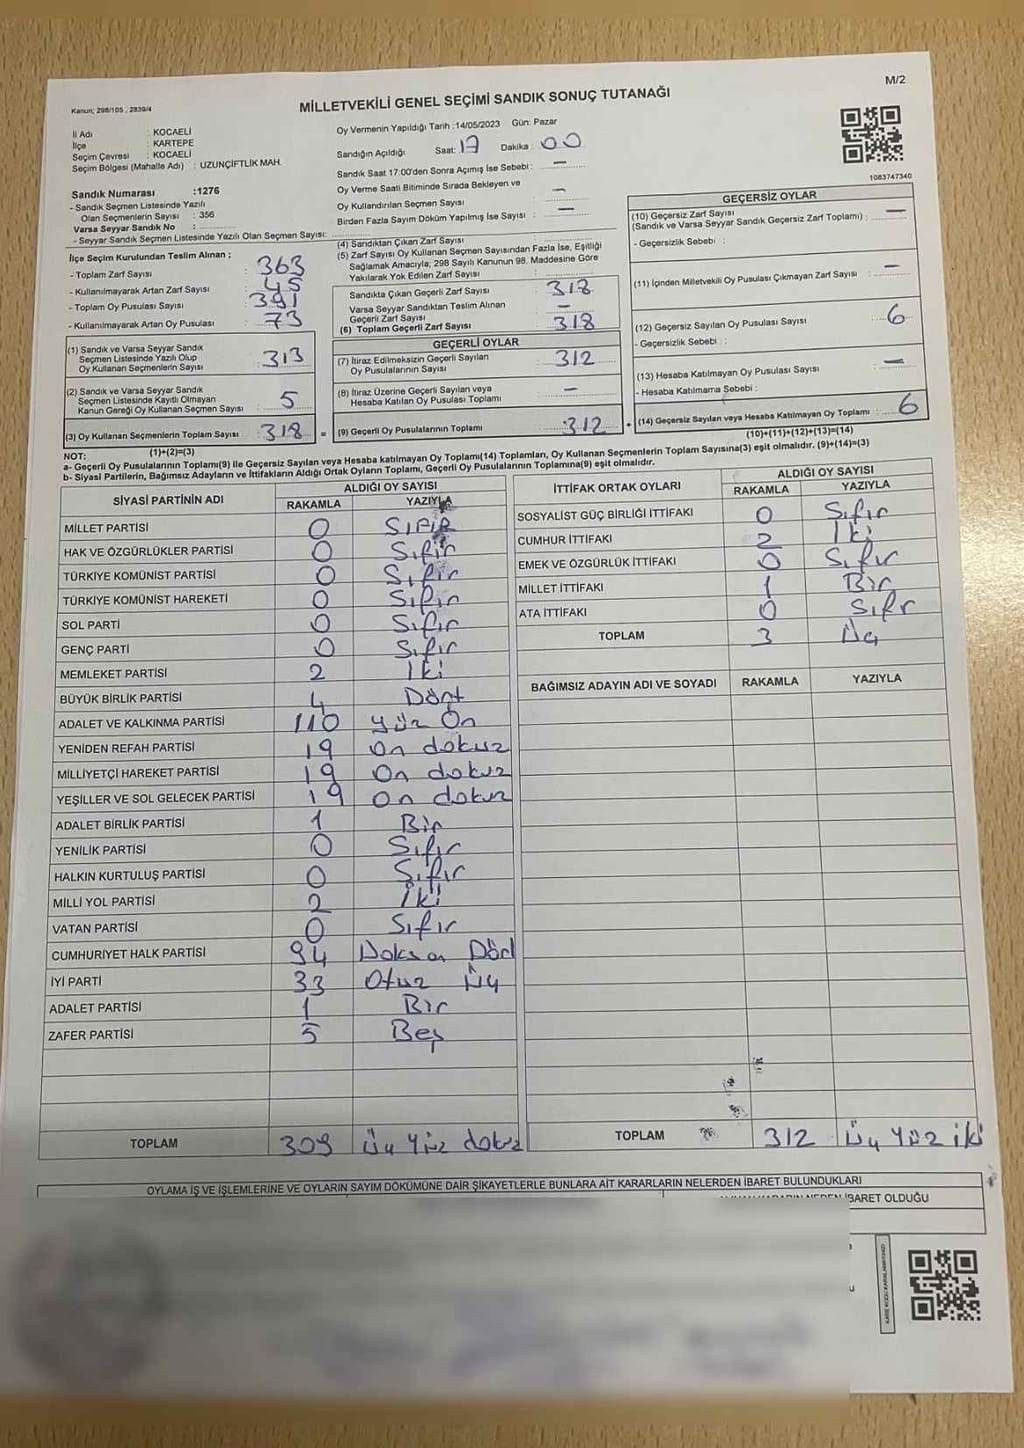 M/2
Kanun; 298/105 , 2839/4
MİLLETVEKİLİ GENEL SEÇİMİ SANDIK SONUÇ TUTANAĞI
İl Adı : KOCAELİ
İlçe : KARTEPE
Seçim Çevresi : KOCAELİ
Seçim Bölgesi (Mahalle Adı) : UZUNÇİFTLİK MAH.
Sandık Numarası :1276
- Sandık Seçmen Listesinde Yazılı
Olan Seçmenlerin Sayısı : 356
Varsa Seyyar Sandık No :
- Seyyar Sandık Seçmen Listesinde Yazılı Olan Seçmen Sayısı:
İlçe Seçim Kurulundan Teslim Alınan ;
- Toplam Zarf Sayısı : 363
- Kullanılmayarak Artan Zarf Sayısı : 45
- Toplam Oy Pusulası Sayısı : 391
- Kullanılmayarak Artan Oy Pusulası : 73
(1) Sandık ve Varsa Seyyar Sandık
Seçmen Listesinde Yazılı Olup
Oy Kullanan Seçmenlerin Sayısı : 313
(2) Sandık ve Varsa Seyyar Sandık
Seçmen Listesinde Kayıtlı Olmayan
Kanun Gereği Oy Kullanan Seçmen Sayısı : 5
(3) Oy Kullanan Seçmenlerin Toplam Sayısı : 318
(1)+(2)=(3)
Oy Vermenin Yapıldığı Tarih :14/05/2023 Gün: Pazar
Sandığın Açıldığı Saat: 17 Dakika : 00
Sandık Saat 17:00'den Sonra Açımış İse Sebebi : —
Oy Verme Saati Bitiminde Sırada Bekleyen ve
Oy Kullandırılan Seçmen Sayısı : —
Birden Fazla Sayım Döküm Yapılmış İse Sayısı : —
(4) Sandıktan Çıkan Zarf Sayısı :
(5) Zarf Sayısı Oy Kullanan Seçmen Sayısından Fazla İse, Eşitliği
Sağlamak Amacıyla; 298 Sayılı Kanunun 98. Maddesine Göre
Yakılarak Yok Edilen Zarf Sayısı :
Sandıkta Çıkan Geçerli Zarf Sayısı : 318
Varsa Seyyar Sandıktan Teslim Alınan
Geçerli Zarf Sayısı : —
(6) Toplam Geçerli Zarf Sayısı : 318
GEÇERLİ OYLAR
(7) İtiraz Edilmeksizin Geçerli Sayılan
Oy Pusulalarının Sayısı : 312
(8) İtiraz Üzerine Geçerli Sayılan veya
Hesaba Katılan Oy Pusulası Toplamı : —
= (9) Geçerli Oy Pusulalarının Toplamı : 312
1083747340
GEÇERSİZ OYLAR
(10) Geçersiz Zarf Sayısı
(Sandık ve Varsa Seyyar Sandık Geçersiz Zarf Toplamı) : —
- Geçersizlik Sebebi :
(11) İçinden Milletvekili Oy Pusulası Çıkmayan Zarf Sayısı : —
(12) Geçersiz Sayılan Oy Pusulası Sayısı : 6
- Geçersizlik Sebebi :
(13) Hesaba Katılmayan Oy Pusulası Sayısı : —
- Hesaba Katılmama Sebebi :
+ (14) Geçersiz Sayılan veya Hesaba Katılmayan Oy Toplamı : 6
(10)+(11)+(12)+(13)=(14)
NOT:
a- Geçerli Oy Pusulalarının Toplamı(9) ile Geçersiz Sayılan veya Hesaba katılmayan Oy Toplamı(14) Toplamları, Oy Kullanan Seçmenlerin Toplam Sayısına(3) eşit olmalıdır. (9)+(14)=(3)
b- Siyasi Partilerin, Bağımsız Adayların ve İttifakların Aldığı Ortak Oyların Toplamı, Geçerli Oy Pusulalarının Toplamına(9) eşit olmalıdır.
SİYASİ PARTİNİN ADI ALDIĞI OY SAYISI
RAKAMLA YAZIYLA
MİLLET PARTİSİ 0 SIFIR
HAK VE ÖZGÜRLÜKLER PARTİSİ 0 Sıfır
TÜRKİYE KOMÜNİST PARTİSİ 0 Sıfır
TÜRKİYE KOMÜNİST HAREKETİ 0 Sıfır
SOL PARTİ 0 Sıfır
GENÇ PARTİ 0 Sıfır
MEMLEKET PARTİSİ 2 İki
BÜYÜK BİRLİK PARTİSİ 4 Dört
ADALET VE KALKINMA PARTİSİ 110 Yüz On
YENİDEN REFAH PARTİSİ 19 On dokuz
MİLLİYETÇİ HAREKET PARTİSİ 19 On dokuz
YEŞİLLER VE SOL GELECEK PARTİSİ 19 On dokuz
ADALET BİRLİK PARTİSİ 1 Bir
YENİLİK PARTİSİ 0 Sıfır
HALKIN KURTULUŞ PARTİSİ 0 Sıfır
MİLLİ YOL PARTİSİ 2 İki
VATAN PARTİSİ 0 Sıfır
CUMHURİYET HALK PARTİSİ 94 Doksan Dört
İYİ PARTİ 33 Otuz Üç
ADALET PARTİSİ 1 Bir
ZAFER PARTİSİ 5 Beş
TOPLAM 309 Üç Yüz dokuz
İTTİFAK ORTAK OYLARI ALDIĞI OY SAYISI
RAKAMLA YAZIYLA
SOSYALİST GÜÇ BİRLİĞİ İTTİFAKI 0 Sıfır
CUMHUR İTTİFAKI 2 İki
EMEK VE ÖZGÜRLÜK İTTİFAKI 0 Sıfır
MİLLET İTTİFAKI 1 Bir
ATA İTTİFAKI 0 Sıfr
TOPLAM 3 Üç
BAĞIMSIZ ADAYIN ADI VE SOYADI RAKAMLA YAZIYLA
TOPLAM 312 Üç Yüz iki
OYLAMA İŞ VE İŞLEMLERİNE VE OYLARIN SAYIM DÖKÜMÜNE DAİR ŞİKAYETLERLE BUNLARA AİT KARARLARIN NELERDEN İBARET BULUNDUKLARI
İBARET OLDUĞU